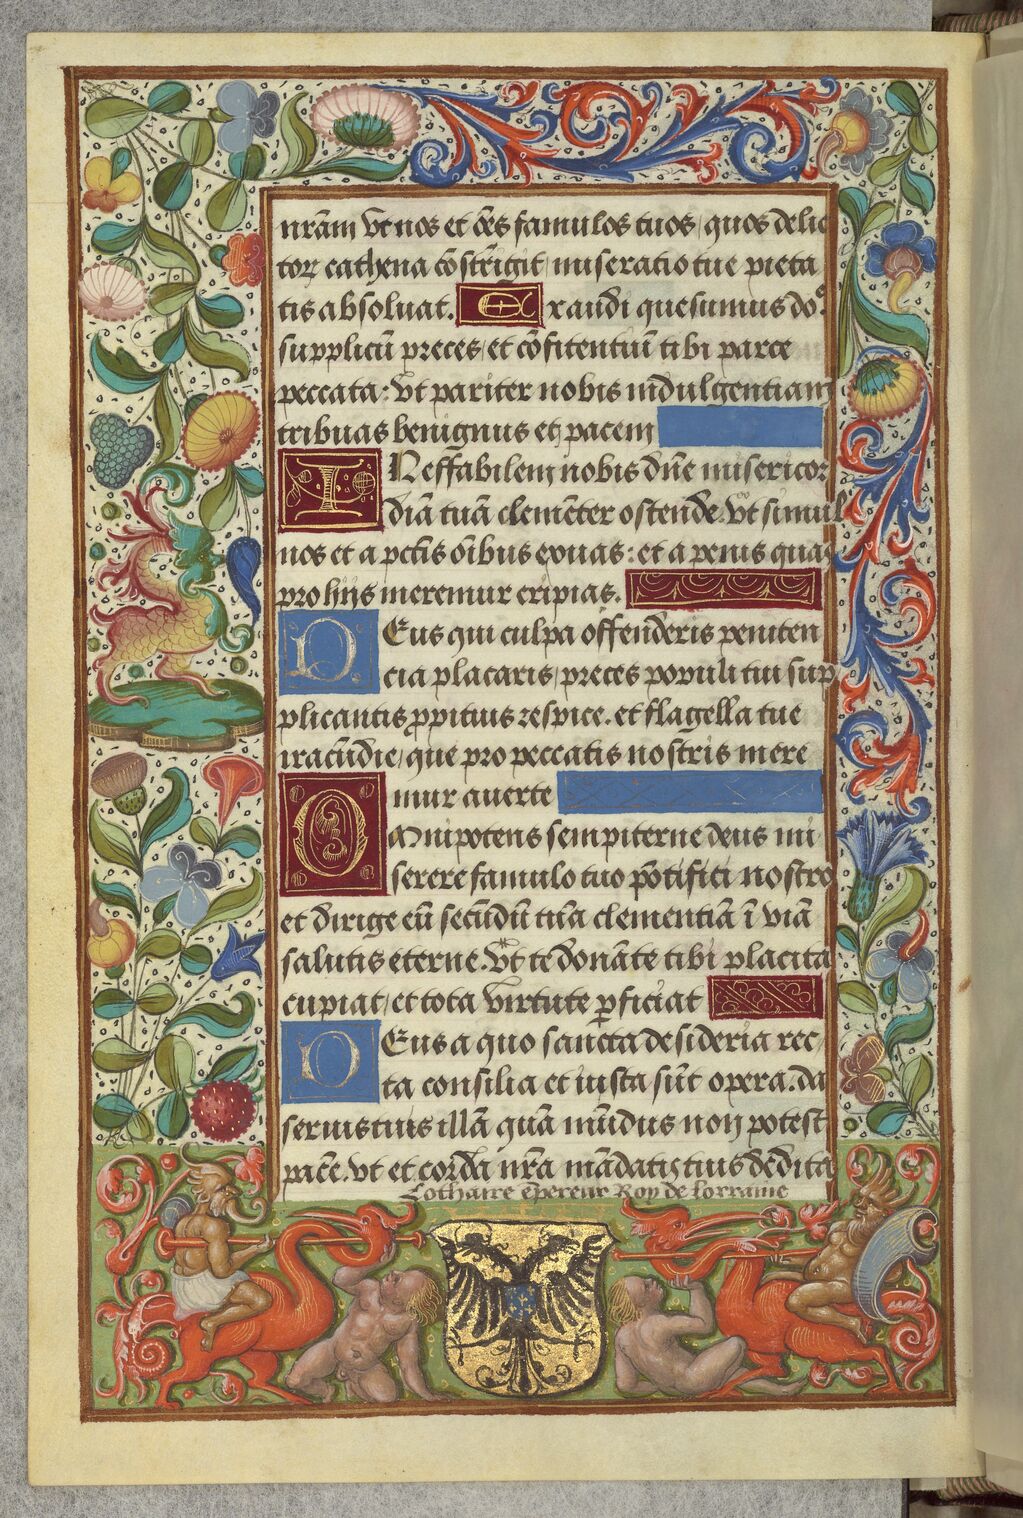 nr̄am vt nos et oēs famulos tuos / quos delic
toꝝ cathena cōstrīgit / miseratio tue pieta
tis absoluat. Exaudi quesumus do⁹
supplicū preces / et cōfitentuī tibi parce
peccata: vt pariter nobis indulgentiam
tribuas benignus et pacem
INeffabilem nobis dn̄e misericor
diā tuā clemēter ostende. vt simul
nos et a pctīs oībus exuas: et a penis quas
pro hijs meremur eripias.
DEus qui culpa offenderis peniten
cia placaris / preces populi tui sup
plicantis ꝓpitius respice. et flagella tue
iracūdie / que pro peccatis nostris mere
mur auerte
OMnipotens sempiterne deus mi
serere famulo tuo pōtifici nostro
et dirige eū secūdū tuā clementiā ī viā
salutis eterne. Vt te donāte tibi placita
cupiat / et tota virtute ꝑficiat
DEus a quo sancta desideria rec
ta consilia et iusta sūt opera. da
seruis tuis illā quā mūdus non potest
pacē. vt et corda nr̄a mādatis tuis dedita
Lothaire epereur Roy de lorraine